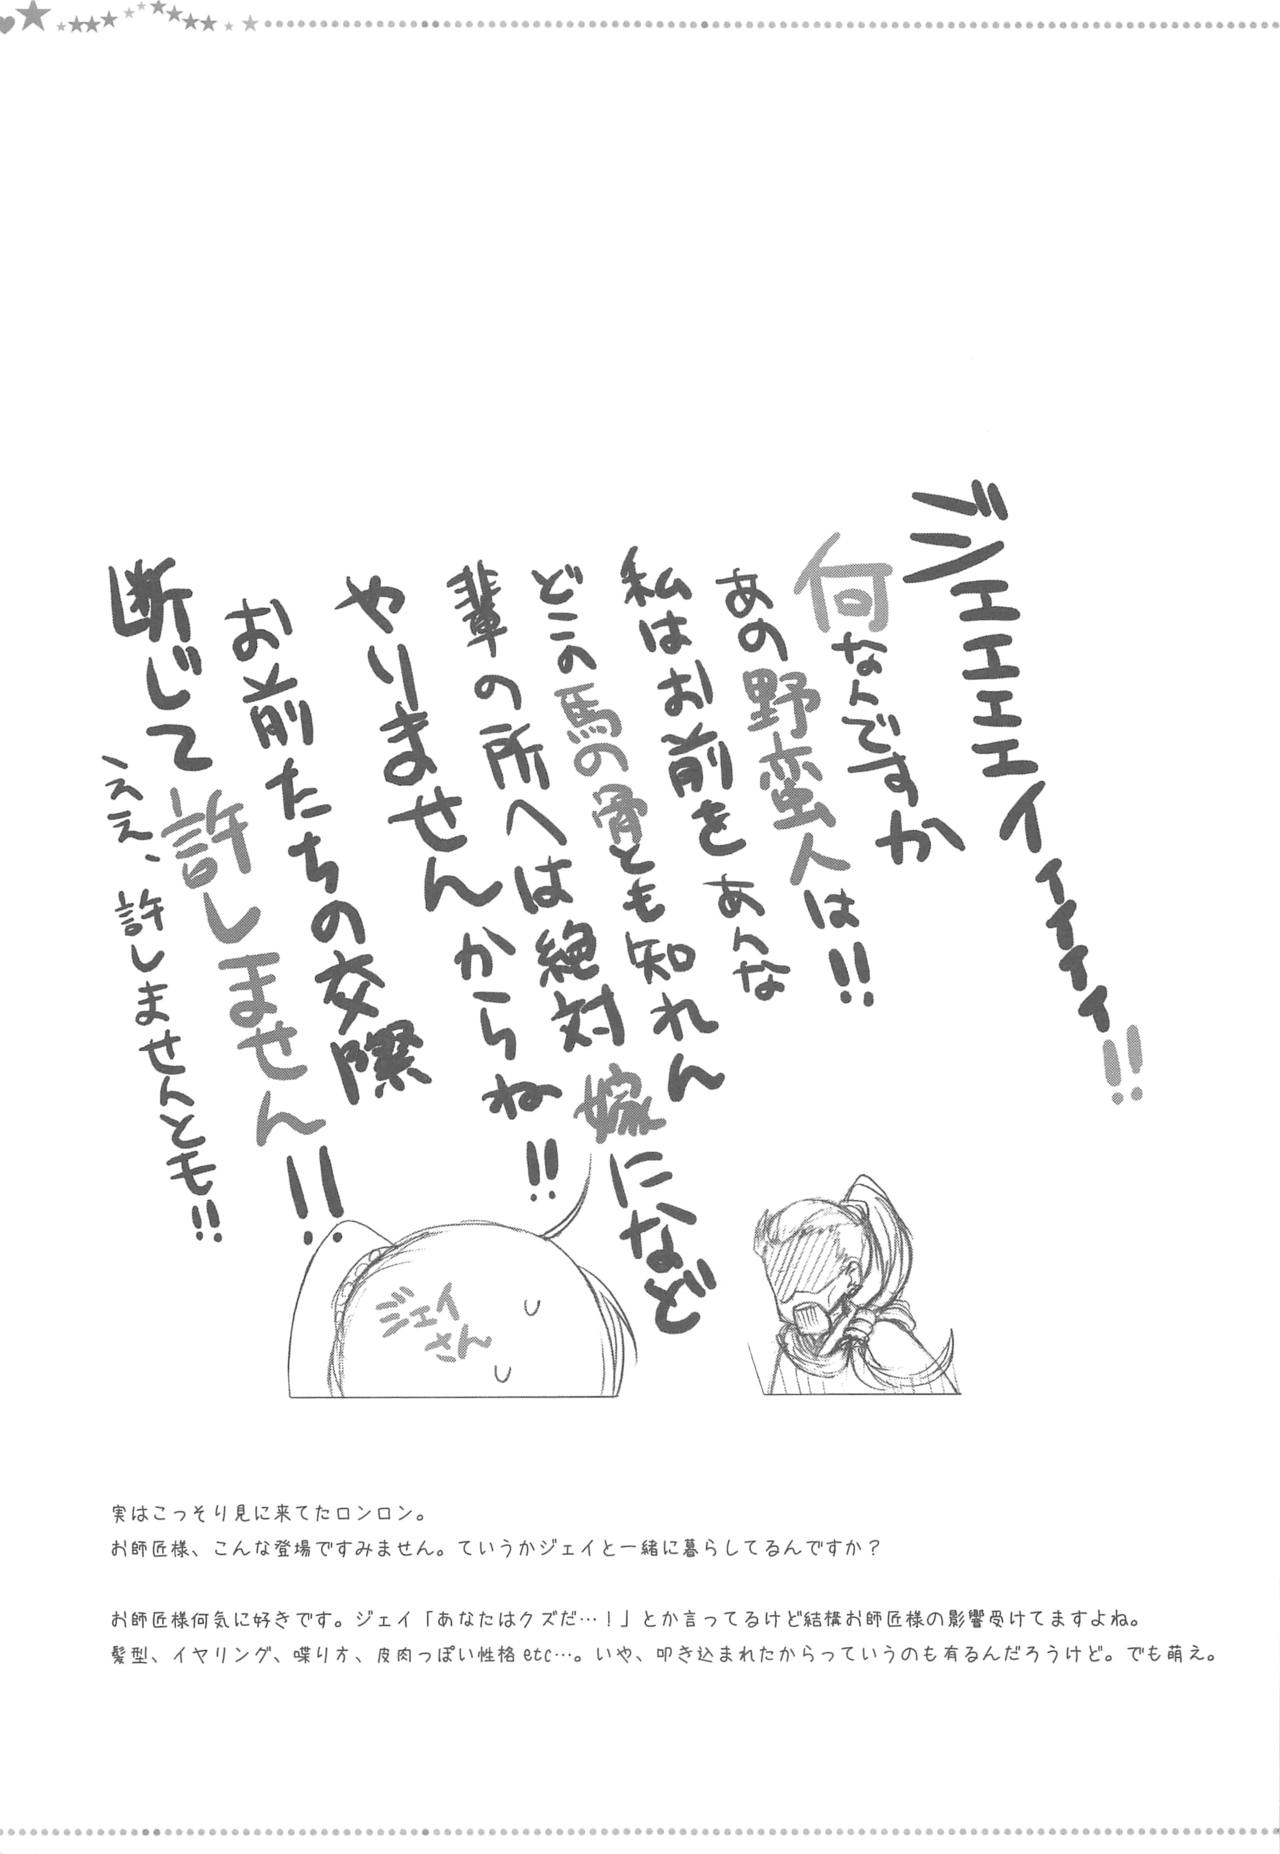 ジェェェェイィィィィ!!
何なんですか
あの野蛮人は!!
私はお前をあんな
どこの馬の骨とも知れん
輩の所へは絶対嫁になど
やりませんからね!!
お前たちの交際
断じて許しません!!
ええ、許しませんとも!!
ジェイ
さん
実はこっそり見に来てたロンロン。
お師匠様、こんな登場ですみません。ていうかジェイと一緒に暮らしてるんですか？
お師匠様何気に好きです。ジェイ「あなたはクズだ…！」とか言ってるけど結構お師匠様の影響受けてますよね。
髪型、イヤリング、喋り方、皮肉っぽい性格etc…。いや、叩き込まれたからっていうのも有るんだろうけど。でも萌え。